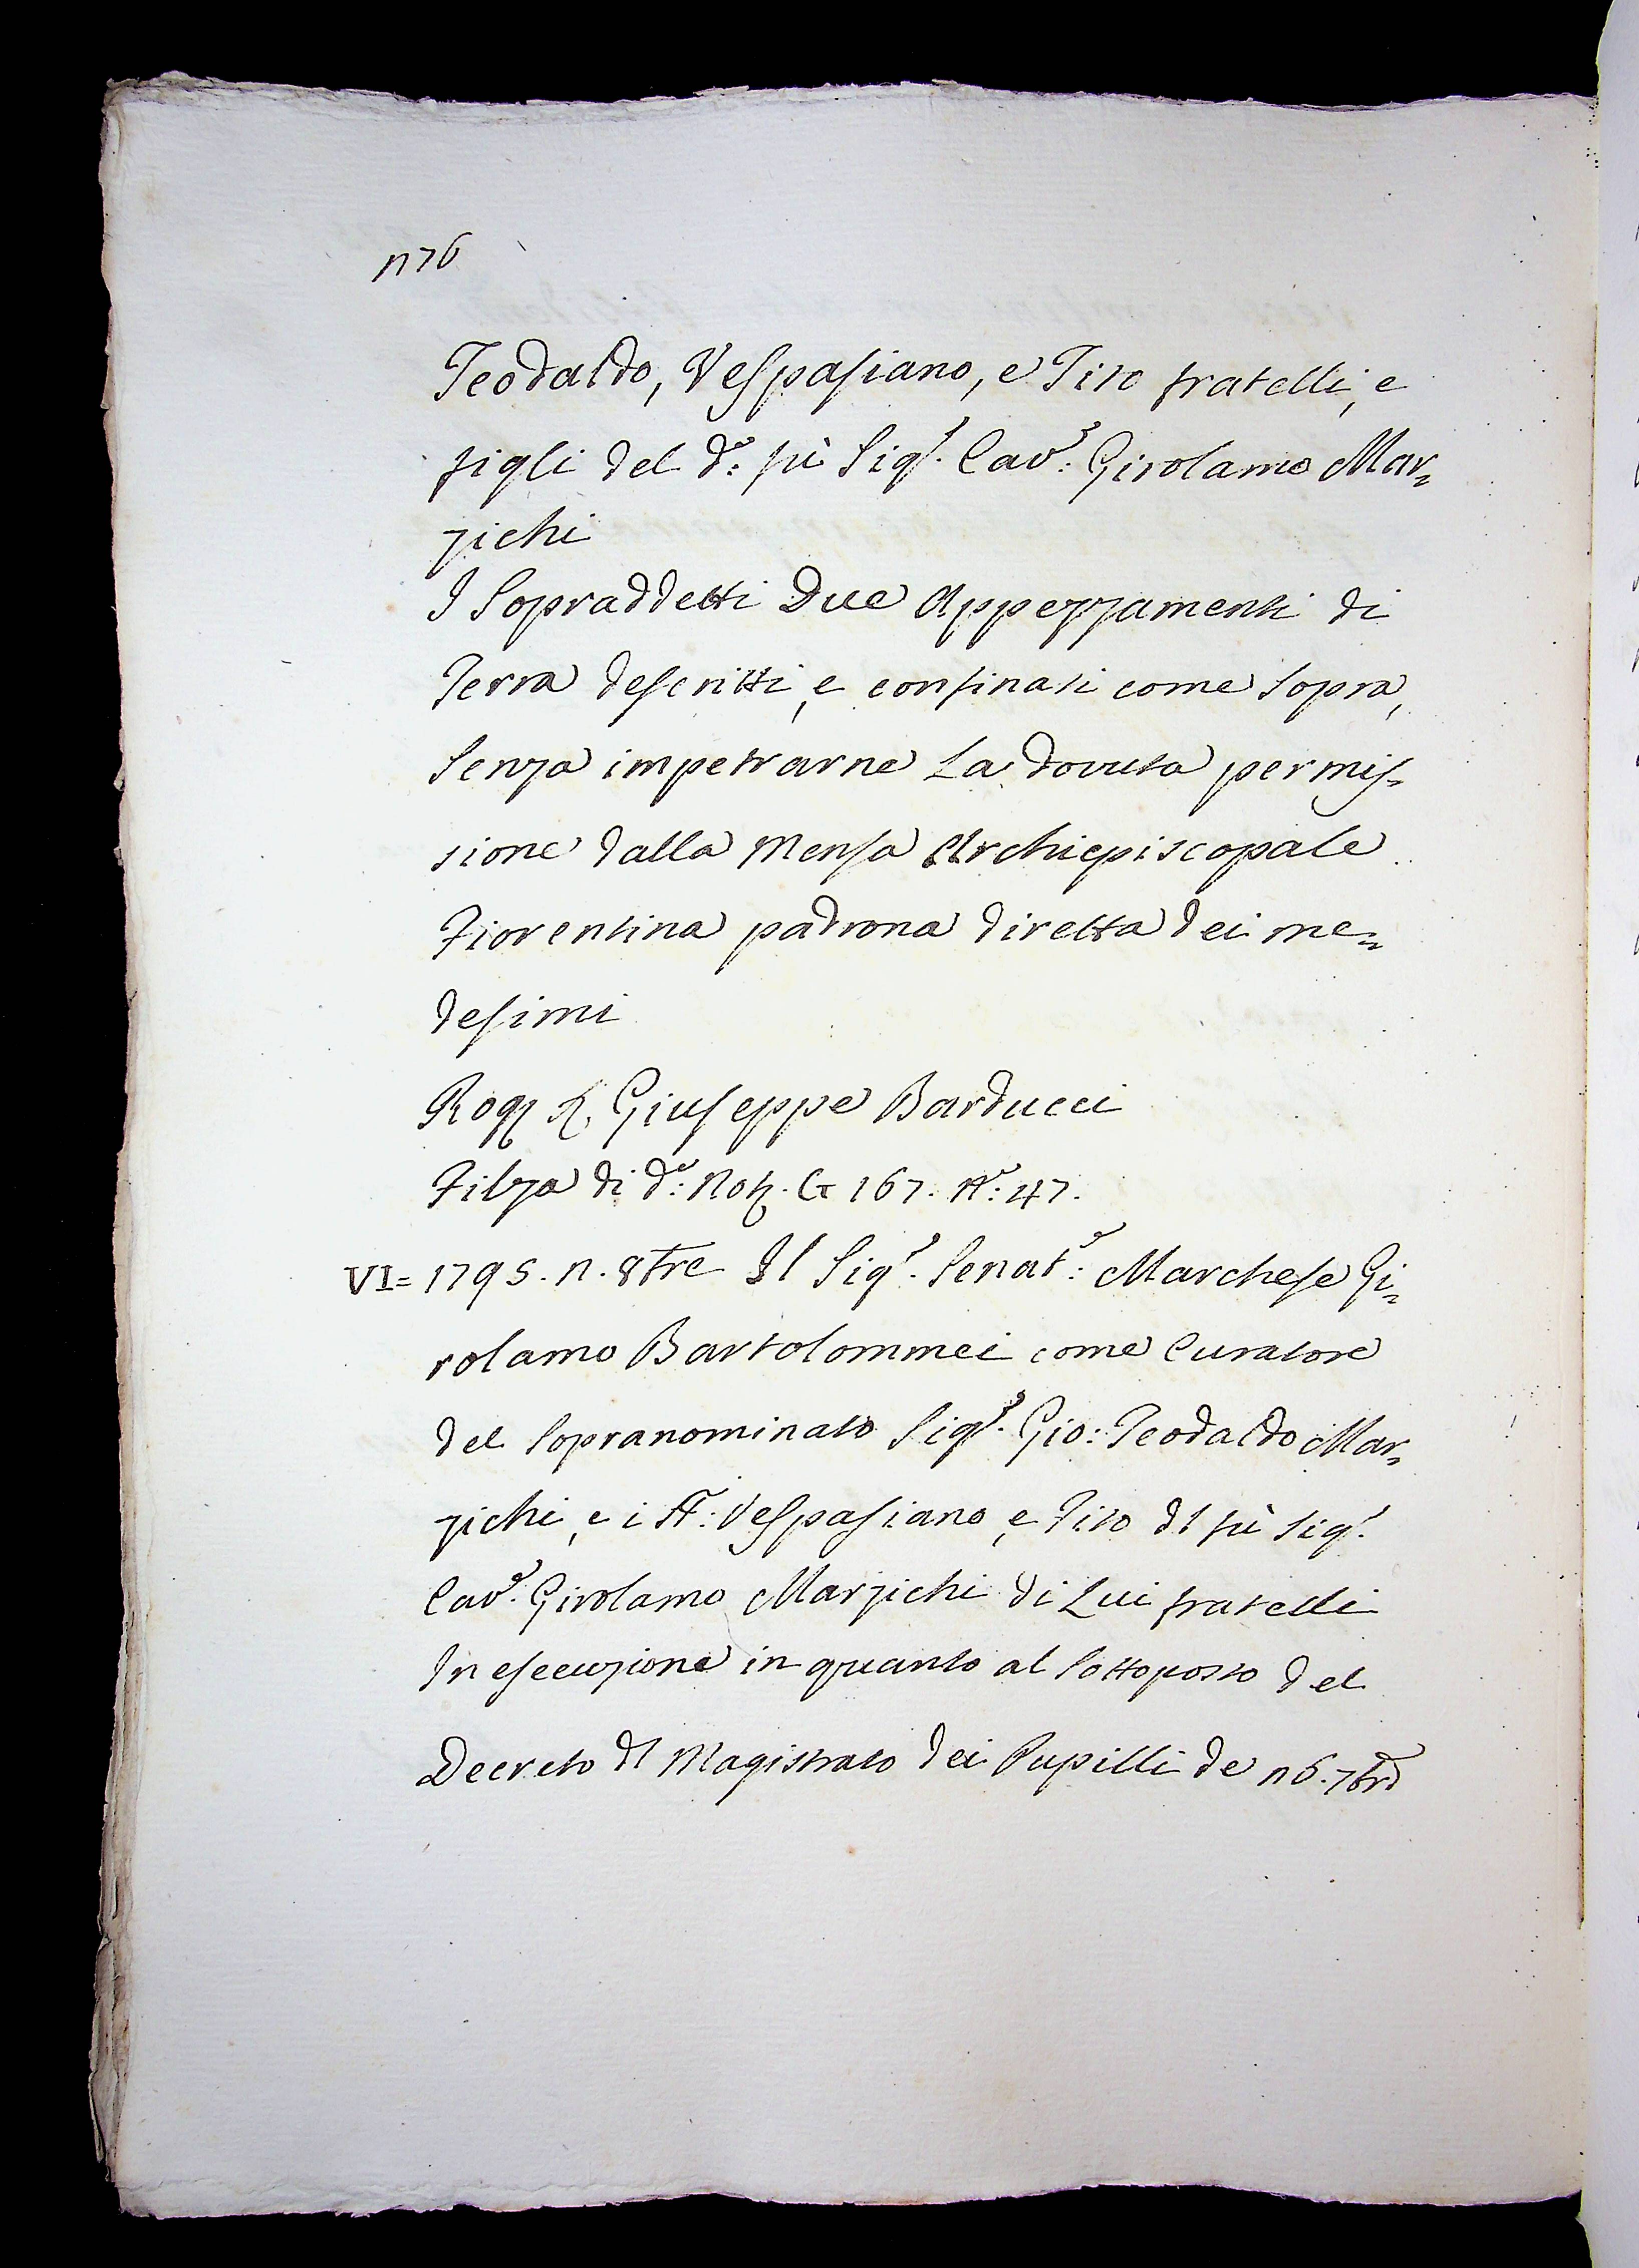 n76
Teodaldo, Vespasiano, e Tito fratelli, e
figli del d.º: fù Sig.r Cav.e: Girolamo Mar=
zichi
I Sopraddetti Due Appezzamenti di
Terra descritti, e confinati come sopra,
Senza impetrarne La dovuta permis=
sione dalla Mensa Archiepiscopale
Fiorentina padrona diretta dei me=
desimi
Giuseppe Barducci
Filza di d.º: Not. G 167. N.º: 47.
VI= 1795. n. 8tre Il Sig.r Senat.e: Marchese Gi=
rolamo Bartolommei come Curatore
del Sopranominato Sig.r Gio: Teodaldo Mar=
zichi, e i FF: Vespasiano, e Tito dl fù Sig.r
Cav.e Girolamo Marzichi di Lui fratelli
In esecuzione in quanto al Sottoposto del
Decreto dl Magistrato dei Pupilli de n6. 7bre